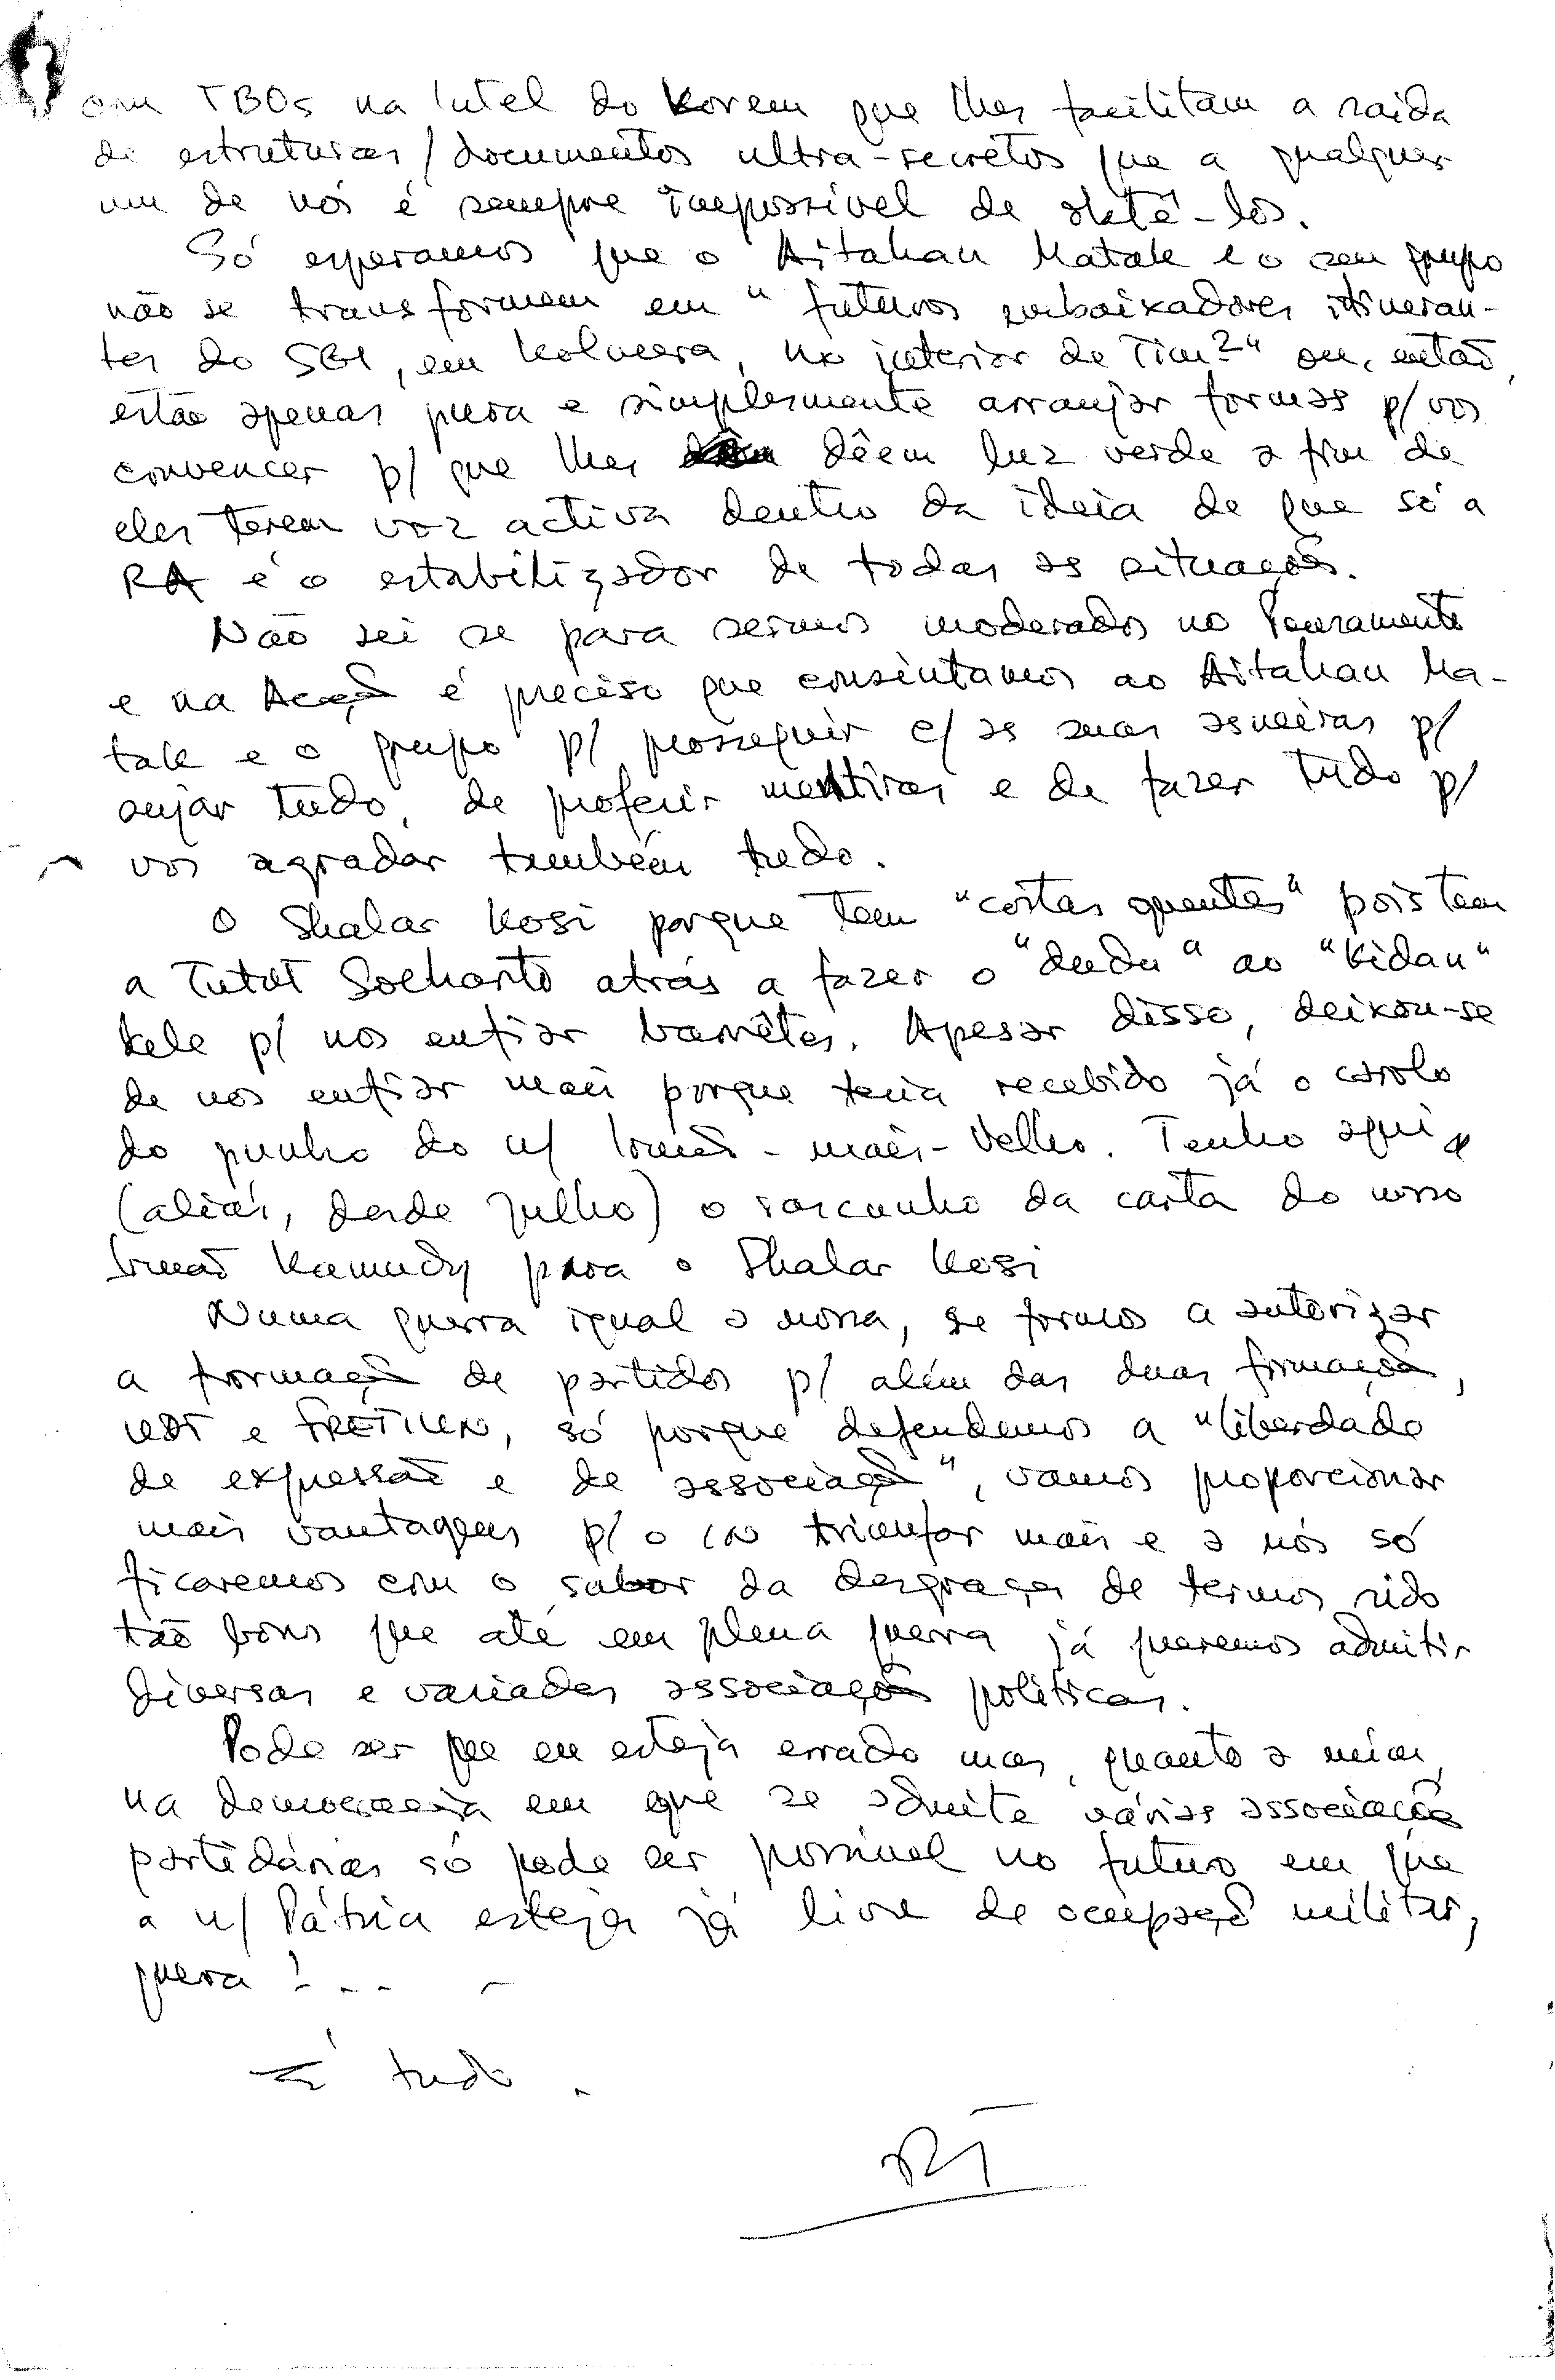 com TBOs na Intel do Korem que lhes facilitam a saída
de estruturas/documentos ultra-secretos que a qualquer
um de nós é sempre impossível de obtê-los.
Só esperamos que o Aitahan Matak e o seu grupo
não se transformem em "futuros embaixadores itineran-
tes do SGI, em , no interior de Tim?" ou, então,
estão apenas pura e simplesmente arranjar formas p/ vos
convencer p/ que lhes dêem luz verde a fim de
eles terem voz activa dentro da ideia de que só a
RA é o estabilizador de todas as situações.
Não sei se para sermos moderados no Pensamento
e na Acção é preciso que consintamos ao Aitahan Ma-
tak e o grupo p/ prosseguir c/ as suas asneiras p/
sujar tudo, de proferir mentiras e de fazer tudo p/
vos agradar também tudo.
O Shalar Kosi porque tem "costas quentes" pois tem
a Tutut Soeharto atrás a fazer o "dudu" ao "Kidau"
kele p/ nos enfiar barretes. Apesar disso, deixou-se
de nos enfiar mais porque teria recebido já o carolo
do punho do n/ Irmão-mais-Velho. Tenho aqui
(aliás, desde Julho) o rascunho da carta do nosso
Irmão Kamudy para o Shalar Kosi
Numa guerra igual a nossa, se formos a autorizar
a formação de partidos p/ além das duas formações,
UDT e FRETILIN, só porque defendemos a "liberdade
de expressão e de associação", vamos proporcionar
mais vantagens p/ o in triunfar mais e a nós só
ficaremos com o sabor da desgraça de termos sido
tão bons que até em plena guerra já queremos admitir
diversas e variadas associações políticas.
Pode ser que eu esteja errado mas, quanto a mim,
na democracia em que se admite várias associações
partidárias só pode ser possível no futuro em que
a n/ Pátria esteja já livre de ocupação militar,
guerra!...
É tudo.